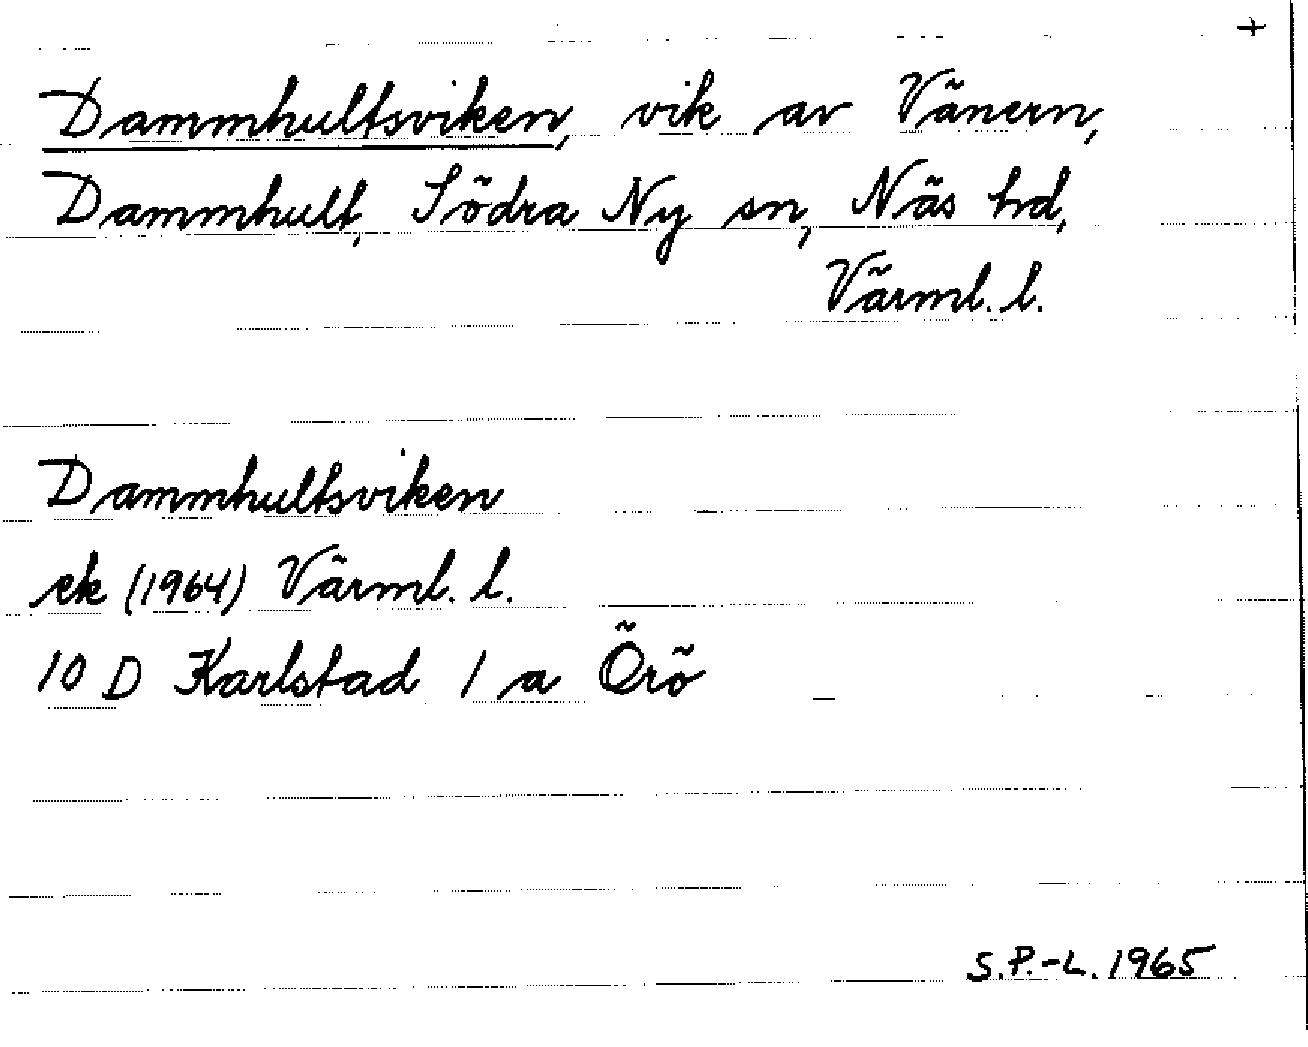 +
Dammhultsviken, vik av Vänern,
Dammhult, Södra Ny sn, Näs hd,
Värml. l.
Dammhultsviken
ek (1964) Värml. l.
10 D Karlstad 1 a Örö
S.P.-L. 1965